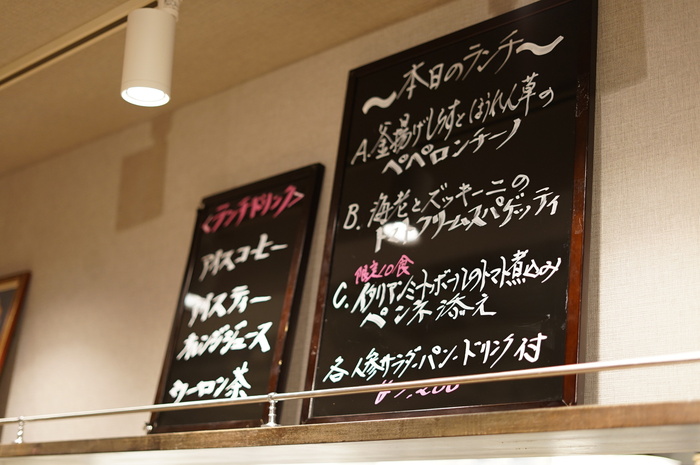 <ランチドリンク>
アイスコーヒー
アイスティー
オレンジジュース
ウーロン茶
〜本日のランチ〜
A. 釜揚げしらすとほうれん草の
ペペロンチーノ
B. 海老とズッキーニの
トマトクリームスパゲッティ
限定10食
C. イタリアンミートボールのトマト煮込み
ペンネ添え
各 人参サラダ・パン・ドリンク付